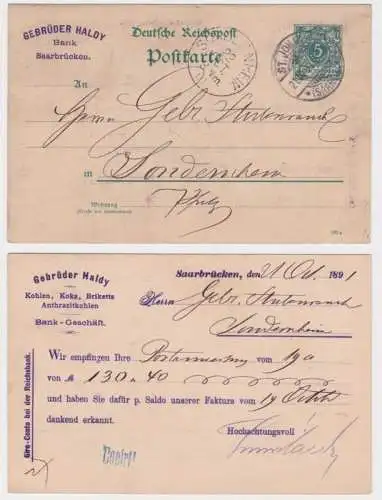 GEBRÜDER HALDY
Bank
Saarbrücken.
Deutsche Reichspost
Postkarte
5
ST. JOH
(SAAR)
An
Herrn Gebr.
in Sondernheim
Pfalz
Wohnung
Gebrüder Haldy
Kohlen, Koks, Briketts
Anthrazitkohlen
Bank-Geschäft.
Giro-Conto bei der Reichsbank.
Saarbrücken, den 21 Oct. 1891
Herrn Gebr.
Sondernheim
Wir empfingen Ihre Postanweisung vom 19 a
von ℳ 130.40
und haben Sie dafür p. Saldo unserer Faktura vom 19 Octob
dankend erkannt.
Hochachtungsvoll
Copirt